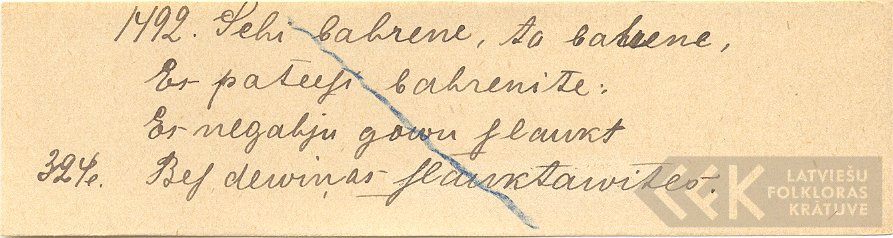 1492. Sehi bahrene, ta bahrene,
Es pateesi bahrenite:
Es negahju gowu slaukt
324e. Bes dewiņas slauktawites.
LATVIEŠU
FOLKLORAS
KRĀTUVE